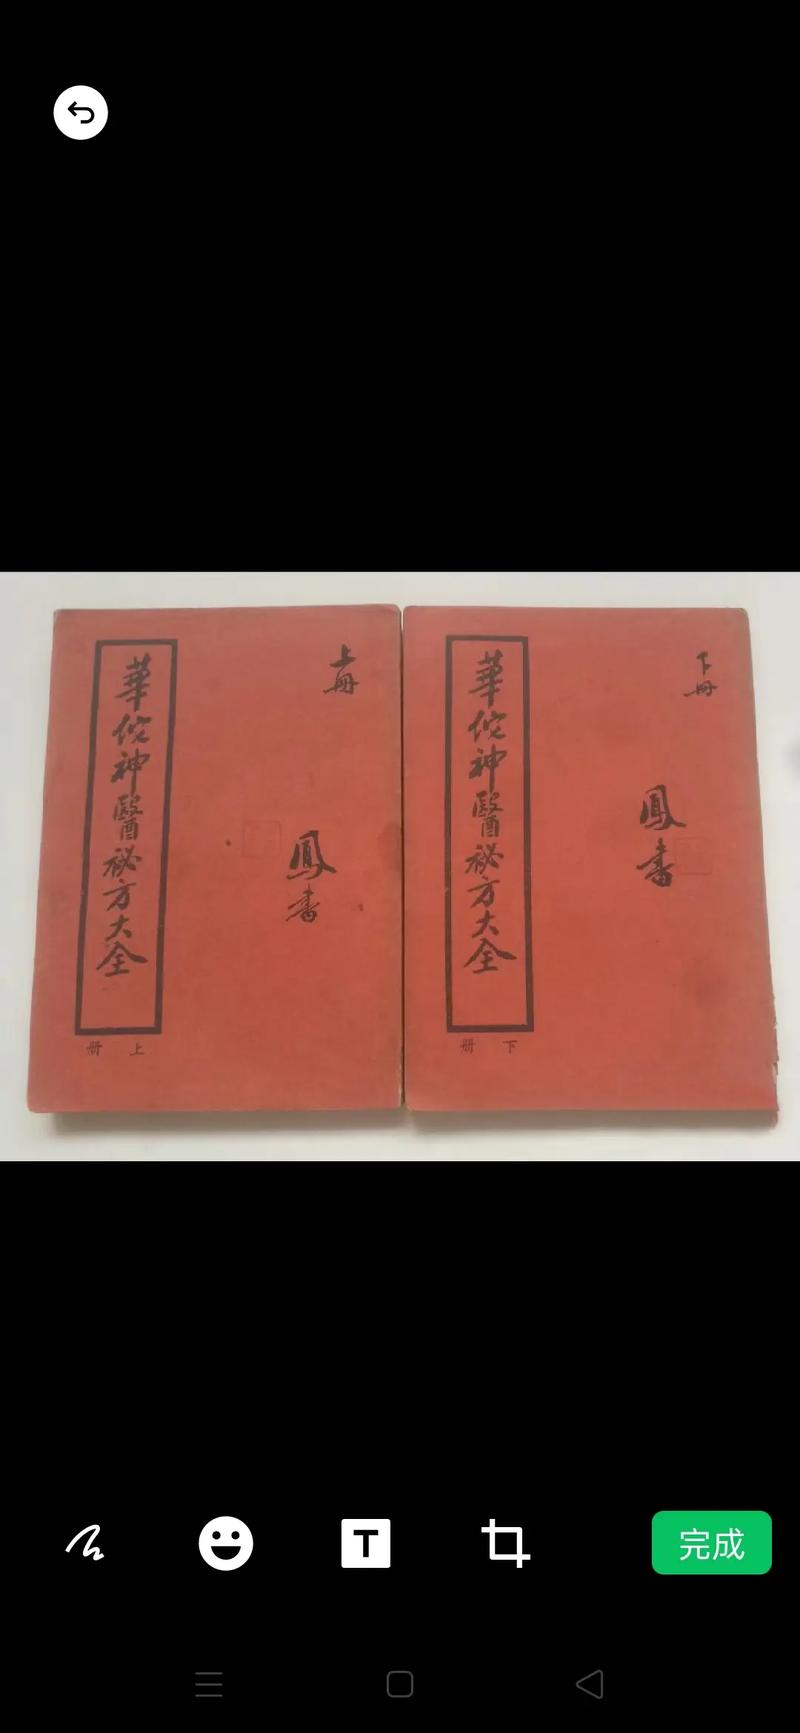 華佗神醫秘方大全
上冊
鳳書
册 上
華佗神醫秘方大全
下冊
鳳書
册 下
完成